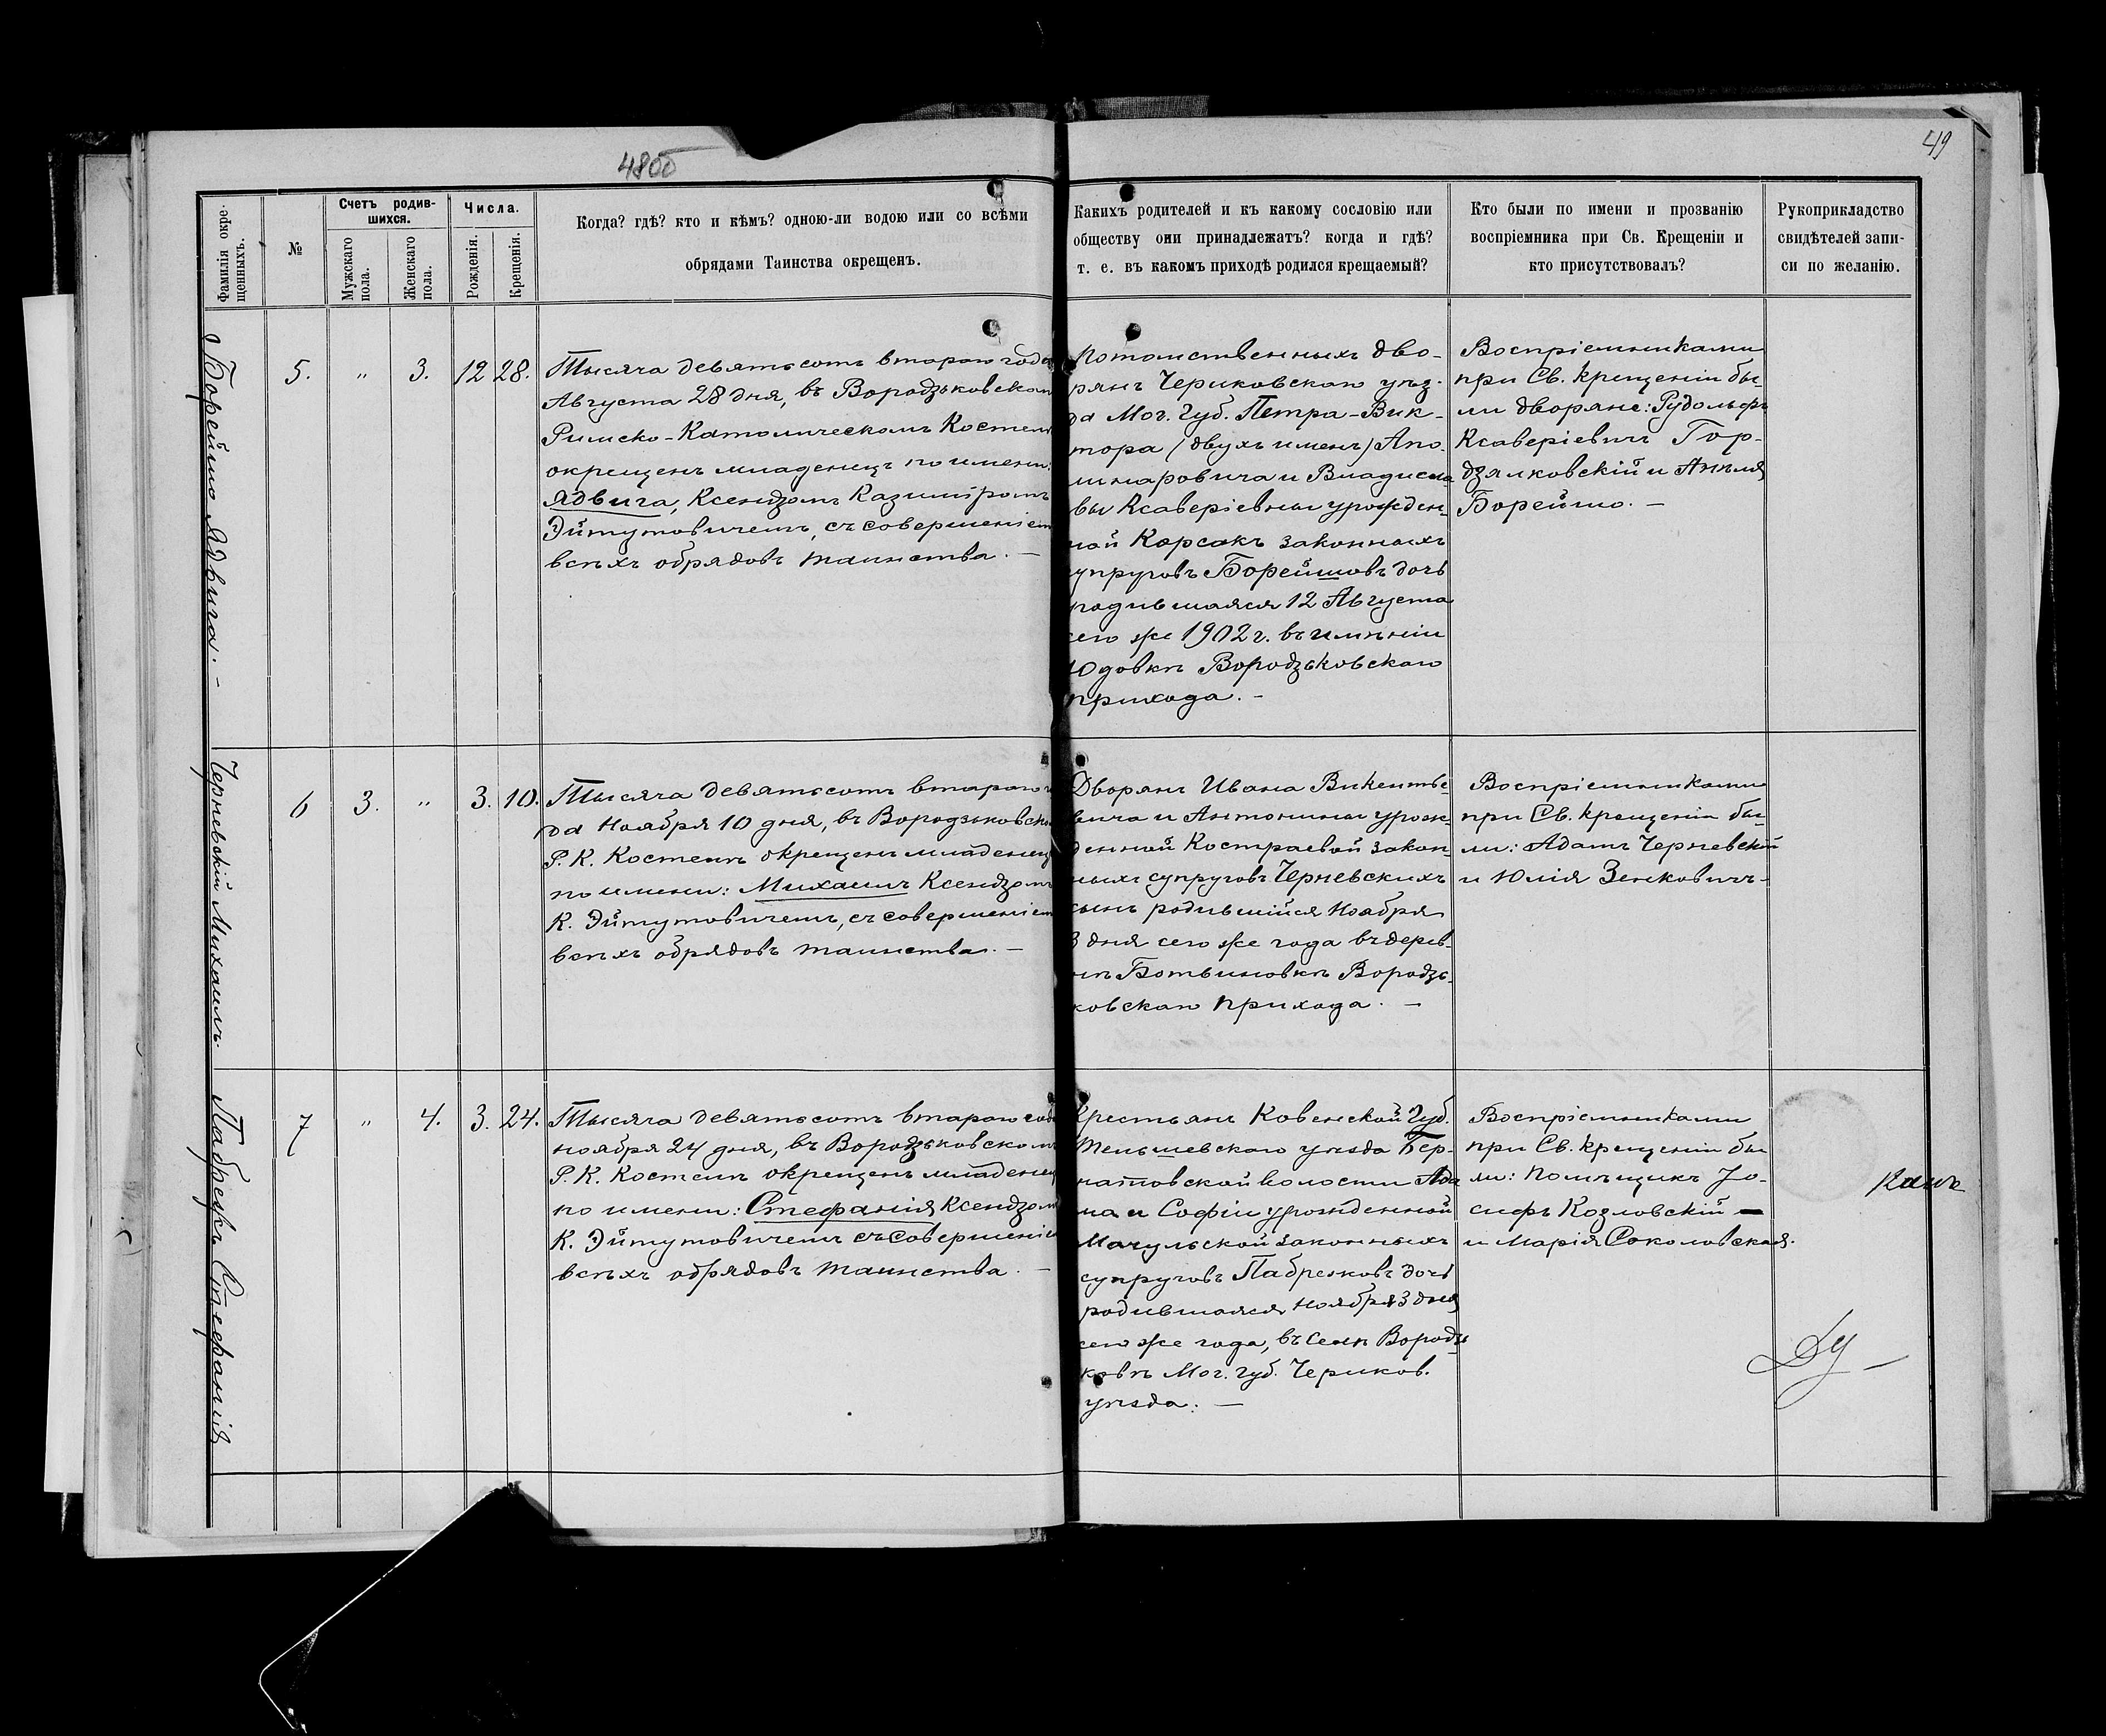 48об
49
Фамилія окре-
щенныхъ.
№
Счетъ родив-
шихся.
Мужскаго
пола.
Женскаго
пола.
Числа.
Рожденія.
Крещенія.
Когда? гдѣ? кто и кѣмъ? одною-ли водою или со всѣми
обрядами Таинства окрещенъ.
Какихъ родителей и къ какому сословію или
обществу они принадлежатъ? когда и гдѣ?
т. е. въ какомъ приходѣ родился крещаемый?
Кто были по имени и прозванію
воспріемника при Св. Крещеніи и
кто присутствовалъ?
Рукоприкладство
свидѣтелей запи-
си по желанію.
Борейшо Ядвига. -
5.
"
3.
12
28.
Тысяча девятьсотъ второго года
Августа 28 дня, въ Вородзьковском
Римско-Католическомъ Костелѣ
окрещенъ младенецъ по имени:
Ядвига, Ксендзомъ Казиміромъ
Эйтутовичемъ, съ совершеніем
всѣхъ обрядовъ таинства. —
Потомственныхъ дво-
рянъ Чериковскаго уѣз-
да Мог. Губ. Петра-Вик-
тора (двухъ именъ) Апо-
линаровича и Владисла
вы Ксаверіевны урожден-
ной Корсакъ законныхъ
супруговъ Борейшовъ дочь
родившаяся 12 Августа
сего же 1902 г. въ имѣніи
Юдовкѣ Вородзьковскаго
прихода. -
Воспріемниками
при Св. крещеніи бы-
ли дворяне: Рудольфъ
Ксаверіевичъ Гор-
дзялковскій и Анѣля
Борейшо. —
Черневскій Михаилъ.
6
3.
"
3.
10.
Тысяча девятьсотъ второго го
да Ноября 10 дня, въ Вородзьковско
Р. К. Костелѣ окрещенъ младенец
по имени: Михаилъ Ксендзомъ
К. Эйтутовичемъ, съ совершеніем
всѣхъ обрядовъ таинства. —
Дворянъ Ивана Викентье-
вича и Антонины урож-
денной Костраевой закон-
ныхъ супруговъ Черневскихъ
сынъ родившійся Ноября
3 дня сего же года въ дерев-
нѣ Ботвиновкѣ Вородзь-
ковскаго прихода. —
Воспріемниками
при Св. крещеніи бы-
ли: Адамъ Черневскій
и Юлія Зенковичъ-
Пабрезкъ Стефанія
7
"
4.
3.
24.
Тысяча девятьсотъ второго год
ноября 24 дня, въ Вородзьковскомъ
Р. К. Костелѣ окрещенъ младенец
по имени: Стефанія Ксендзом
К. Эйтутовичемъ съ совершеніем
всѣхъ обрядовъ таинства. —
Крестьянъ Ковенской Губ.
Тельшевскаго уѣзда Бер-
натовской волости Ада
ма и Софіи урожденной
Мачульской законныхъ
супруговъ Пабрезковъ дочь
родившаяся Ноября 3 дня
сего же года, въ селѣ Вородзь
ковѣ Мог. Губ. Чериков.
уѣзда. —
Воспріемниками
при Св. крещеніи бы
ли: помѣщикъ Іо-
сифъ Козловскій —
и Марія Соколовская.